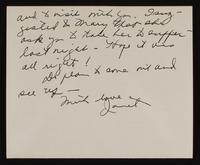 and to visit with you. I sug-
gested to Mary that she
ask you to take her to supper
last night - Hope it was
all right!
I'll plan to come out and
see us -
Much love -
Janet